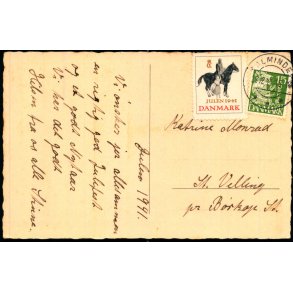 Julen 1941.
Vi ønsker jer allesammen
en rigtig god Julefest
og et godt Nytaar
Vi har det godt
Hilsen fra os alle Stinne.
JULEN 1941
DANMARK
15
DANMARK
Katrine Monrad
St. Velling
pr Børkop St.